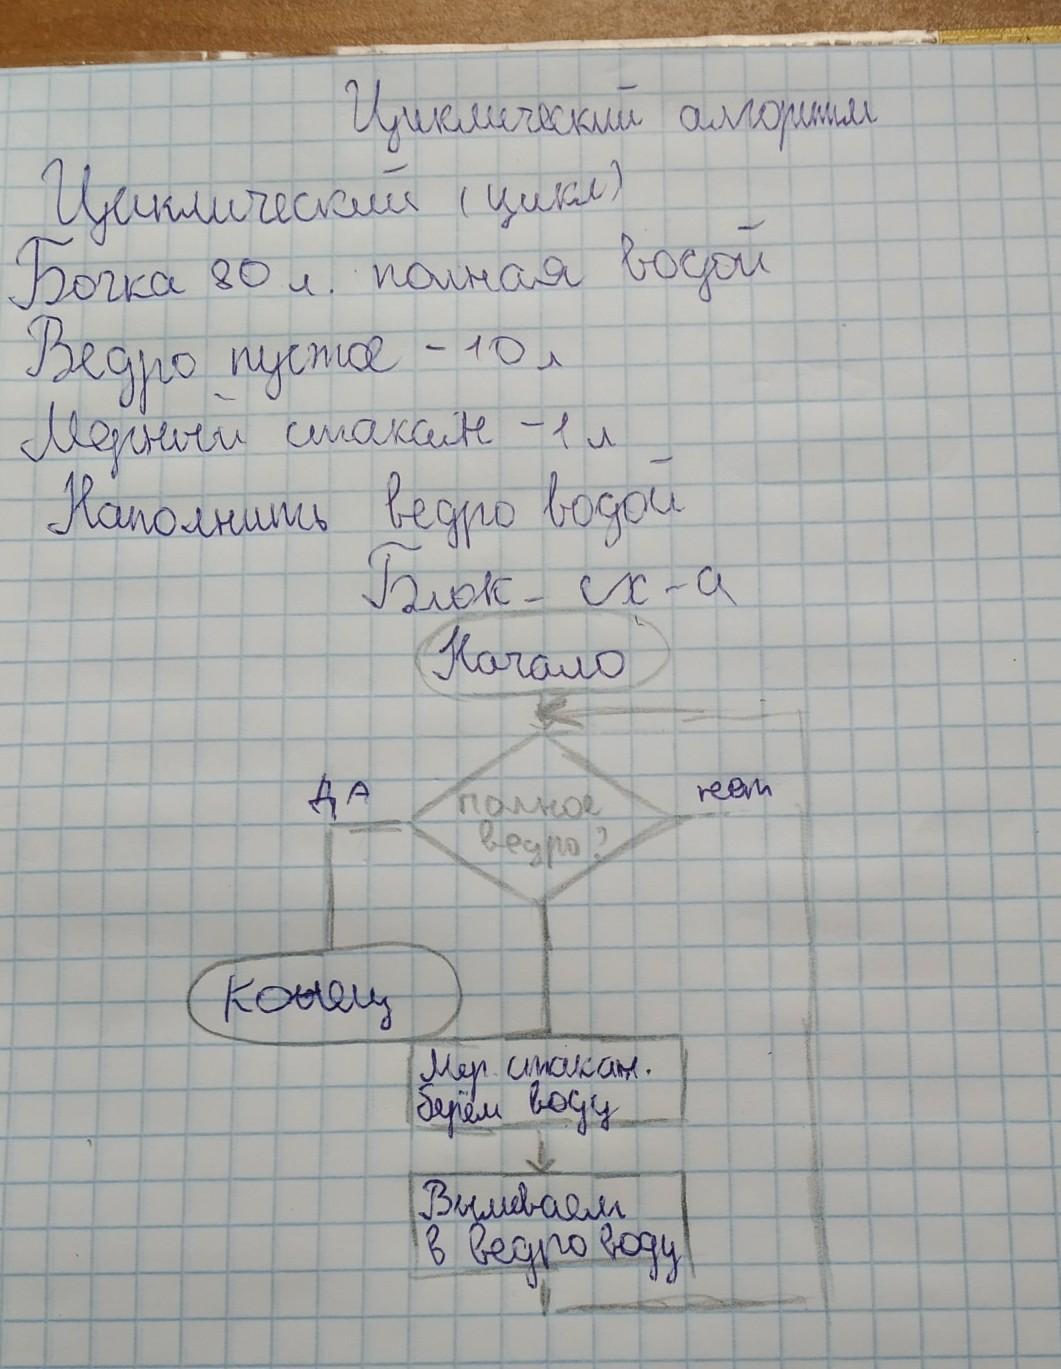 Циклический алгоритм
Циклический (цикл)
Бочка 80 л. полная водой
Ведро пустое - 10 л
Мерный стакан - 1 л
Наполнить ведро водой
Блок - сх - а
Начало
ДА
полное
ведро?
нет
Конец
Мер. стакан.
берём воду
Выливаем
в ведро воду